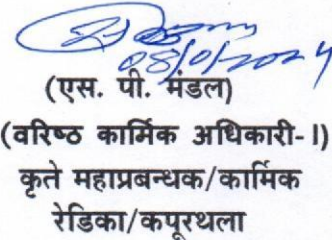 (एस. पी. मंडल)
(वरिष्ठ कार्मिक अधिकारी-I)
कृते महाप्रबन्धक/कार्मिक
रेडिका/कपूरथला